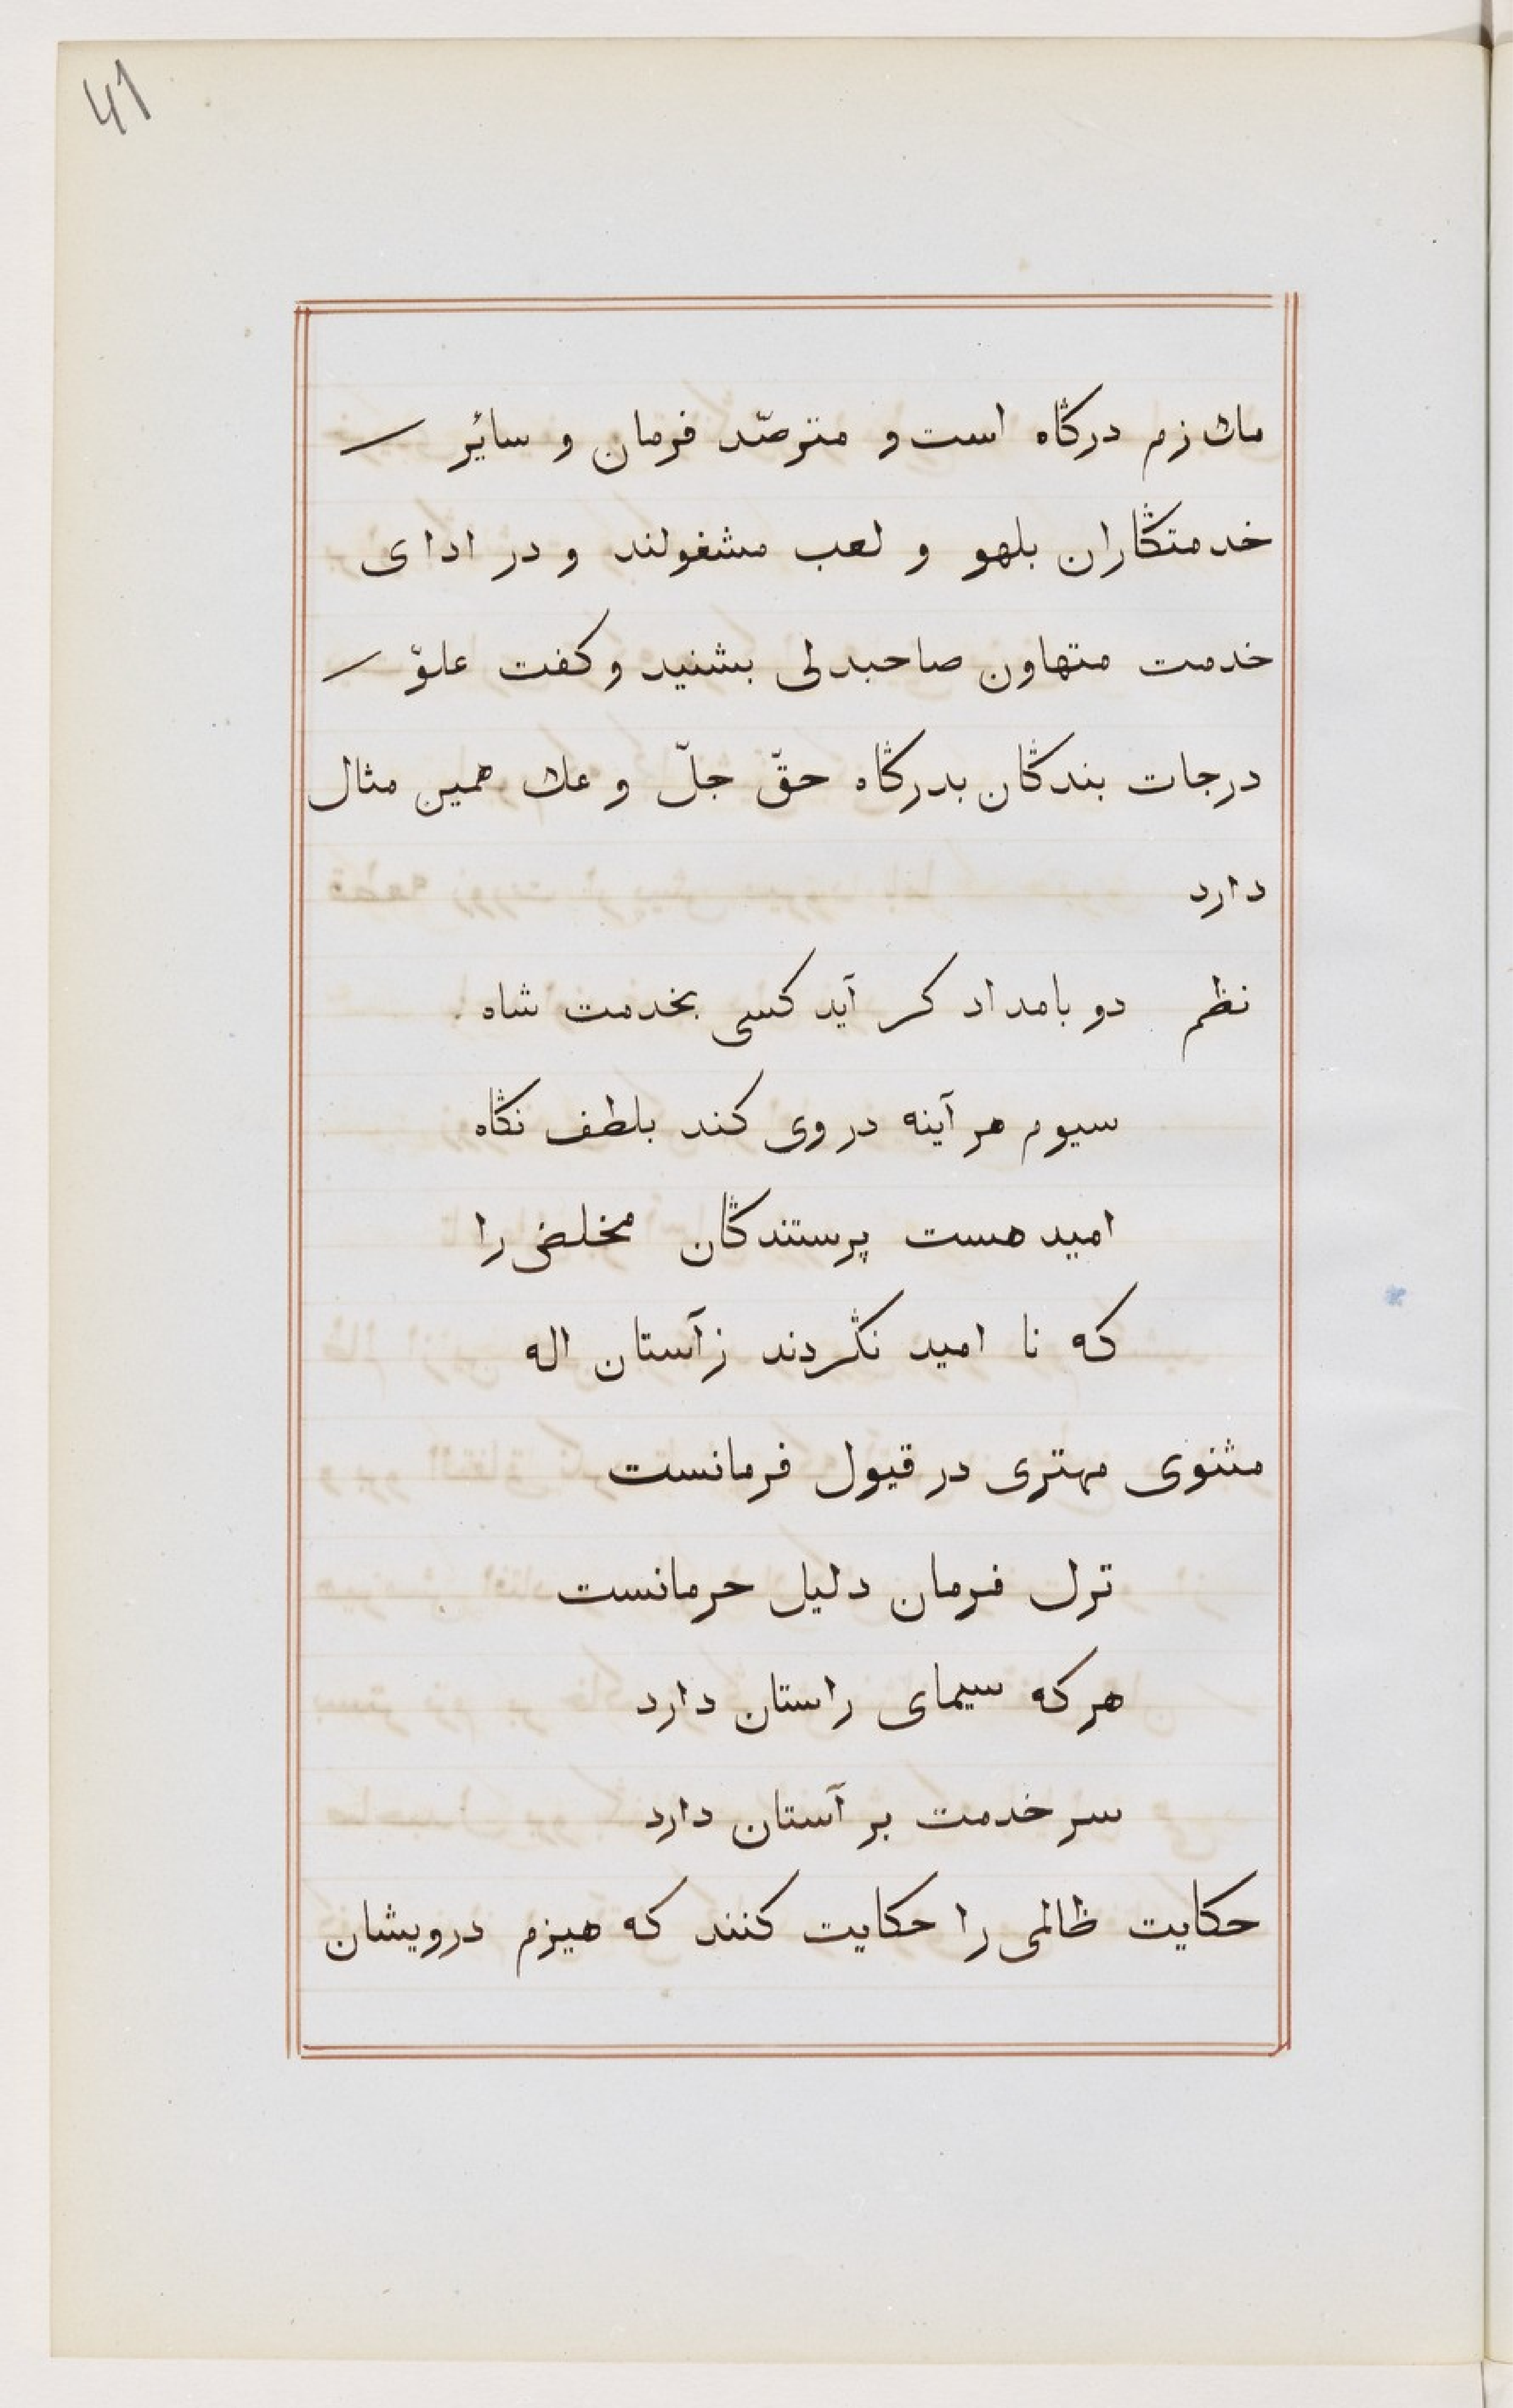 41
ملازم درگاه است و مترصّد فرمان و سائر
خدمتگاران بلهو و لعب مشغولند و در ادای
خدمت متهاون صاحبدلی بشنید و کفت علوّ
درجات بندگان بدرگاه حقّ جلّ و علا همین مثال
دارد
نظم دو بامداد کر آید کسی بخدمت شاه
سیوم هر آینه در وی کند بلطف نگاه
امید هست پرستندگان مخلص را
که نا امید نگردند زآستان اله
مثنوی مهتری در قبول فرمانست
ترك فرمان دلیل حرمانست
هر که سیمای راستان دارد
سر خدمت بر آستان دارد
حکایت ظالمی را حکایت کنند که هیزم درویشان